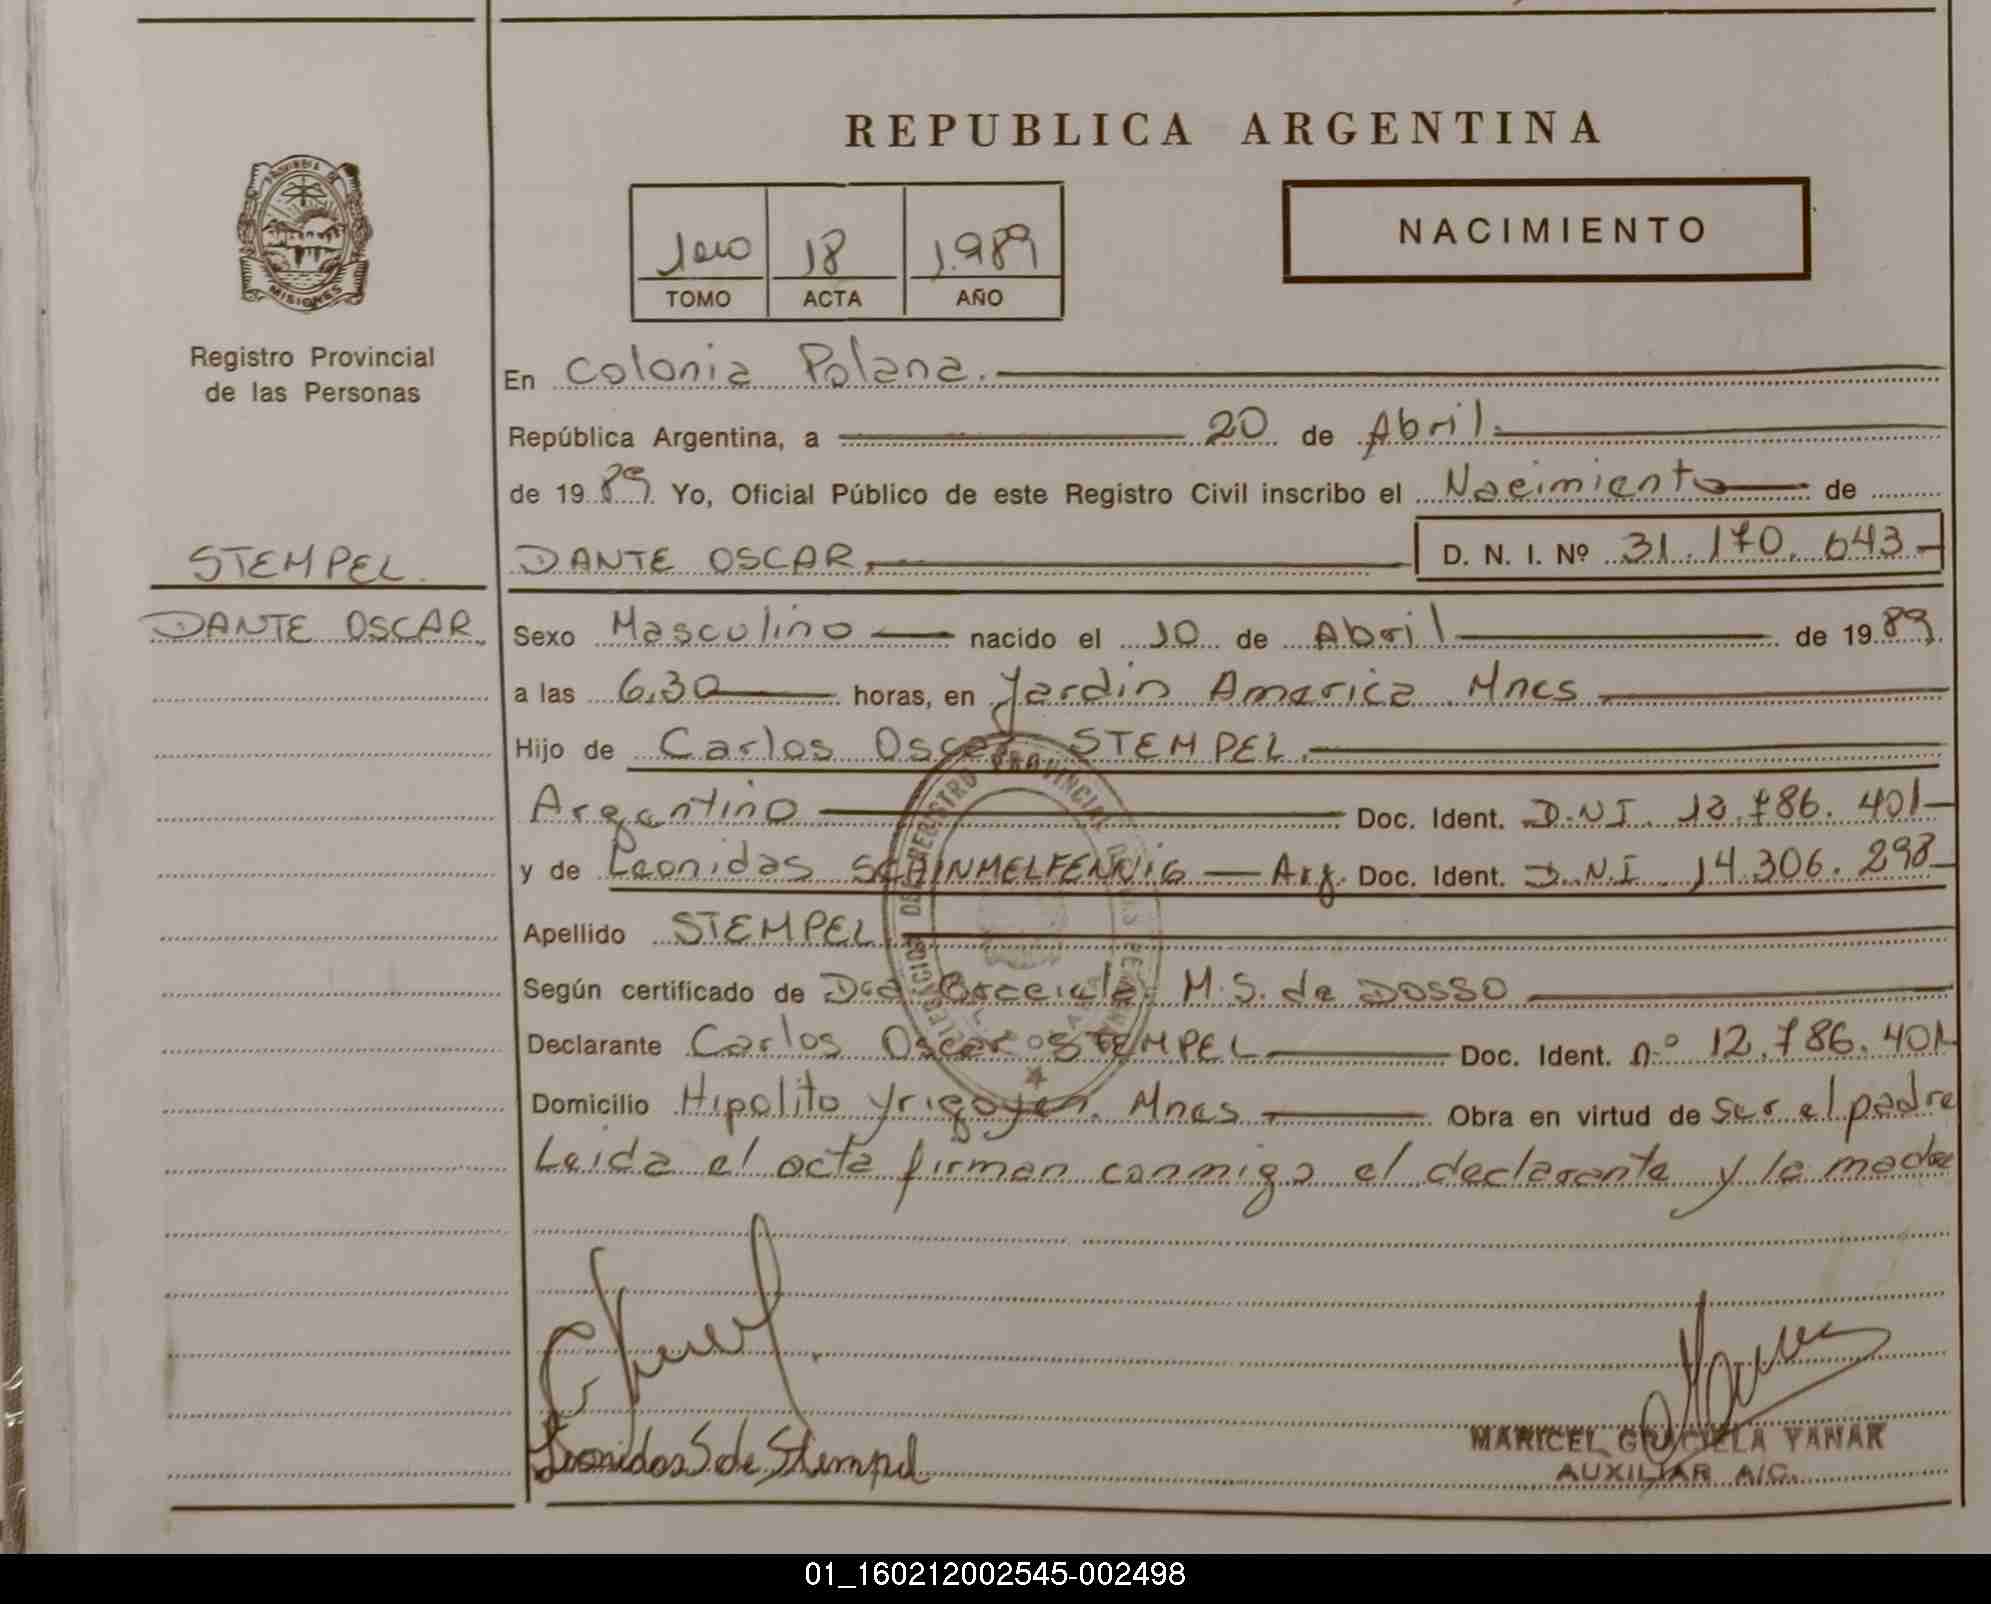 REPUBLICA ARGENTINA
1ero 18 1.989
TOMO ACTA AÑO
NACIMIENTO
MISIONES
Registro Provincial
de las Personas
STEMPEL.
DANTE OSCAR.
En Colonia Polana.
República Argentina, a 20 de Abril.
de 1989. Yo, Oficial Público de este Registro Civil inscribo el Nacimiento de
DANTE OSCAR. D. N. I. Nº 31.170.643
Sexo Masculino nacido el 10 de Abril de 1989.
a las 6,30 horas, en Jardin America Mnes
Hijo de Carlos Oscar STEMPEL.
Argentino Doc. Ident. D.N.I. 12.786.401
y de Leonidas SCHINMELFENNIG Arg. Doc. Ident. D.N.I. 14.306.298
Apellido STEMPEL
Según certificado de Dra M.S. de DOSSO
Declarante Carlos Oscar STEMPEL Doc. Ident. n.º 12.786.401
Domicilio Hipolito Yrigoyen. Mnes Obra en virtud de ser el padre
Leida el acta firman conmigo el declarante y la madre
Leonidas S de Stempel
MARICEL GRACIELA YANAR
AUXILIAR A/C.
01_160212002545-002498